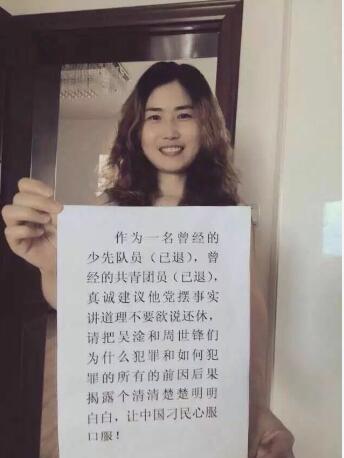 作为一名曾经的
少先队员（已退），曾
经的共青团员（已退），
真诚建议他党摆事实
讲道理不要欲说还休，
请把吴淦和周世锋们
为什么犯罪和如何犯
罪的所有的前因后果
揭露个清清楚楚明明
白白，让中国刁民心服
口服！